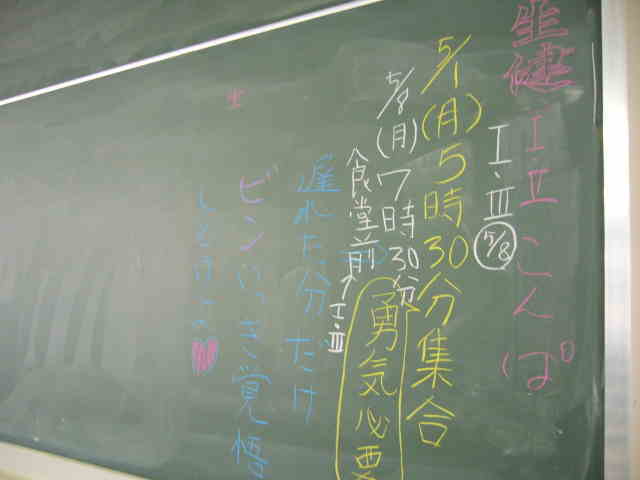 韭健・Ⅰ・Ⅱこんぱ
Ⅰ・Ⅲ 5/8
5/1(月)5時30分集合
5/8(月)7時30分
勇気必要
食堂前←Ⅰ・Ⅲ
遅れた分だけ
ビンいっき覚悟
しとけよ